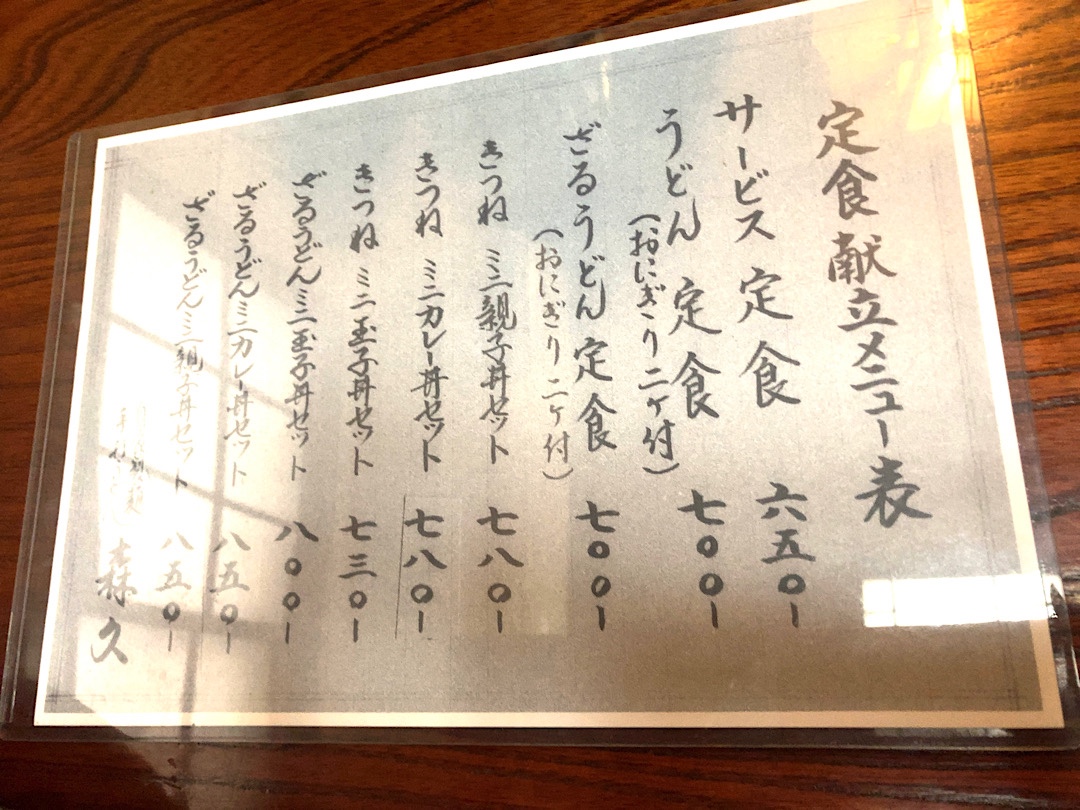 定食献立メニュー表
サービス定食 六五〇-
うどん定食 七〇〇-
(おにぎり二ヶ付)
ざるうどん定食 七〇〇-
(おにぎり二ヶ付)
きつね ミニ親子丼セット 七八〇-
きつね ミニカレー丼セット 七八〇-
きつね ミニ玉子丼セット 七三〇-
ざるうどんミニ玉子丼セット 八〇〇-
ざるうどんミニカレー丼セット 八五〇-
ざるうどんミニ親子丼セット 八五〇-
森久